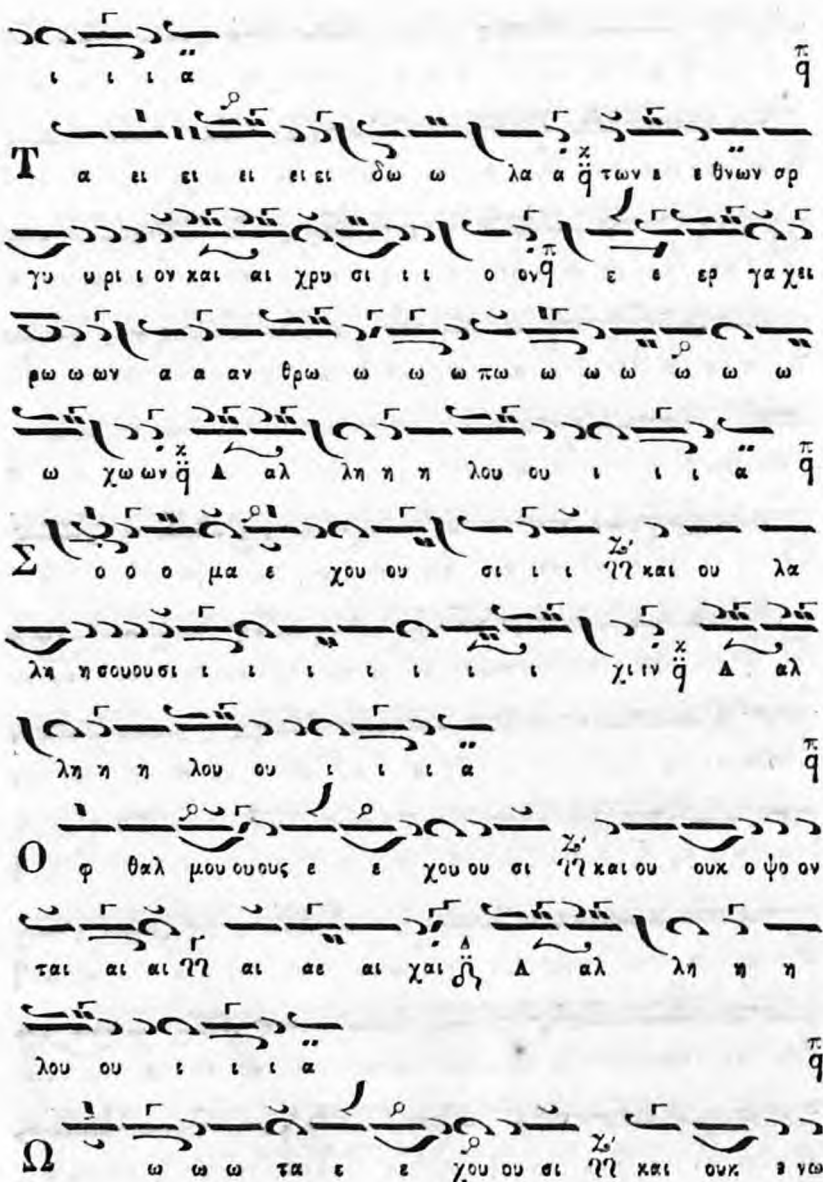 ι ι ι α
Τ α ει ει ει ει ει δω ω λα α των ε ε θνων αρ
γυ υ ρι ι ον και αι χρυ σι ι ι ο ον ε ε ερ γα χει
ρω ω ων α α αν θρω ω ω ω πω ω ω ω ω ω ω
ω χω ων Α αλ λη η η λου ου ι ι ι α
Σ ο ο ο μα ε χου ου σι ι ι και ου λα
λη η σου ου σι ι ι ι ι ι ι ι χι ιν Α αλ
λη η η λου ου ι ι ι α
Ο φ θαλ μου ου ους ε ε χου ου σι και ου ουκ ο ψο ον
ται αι αι αι αε αι χαι Α αλ λη η η
λου ου ι ι ι α
Ω ω ω ω τα ε ε χου ου σι και ουκ ε νω